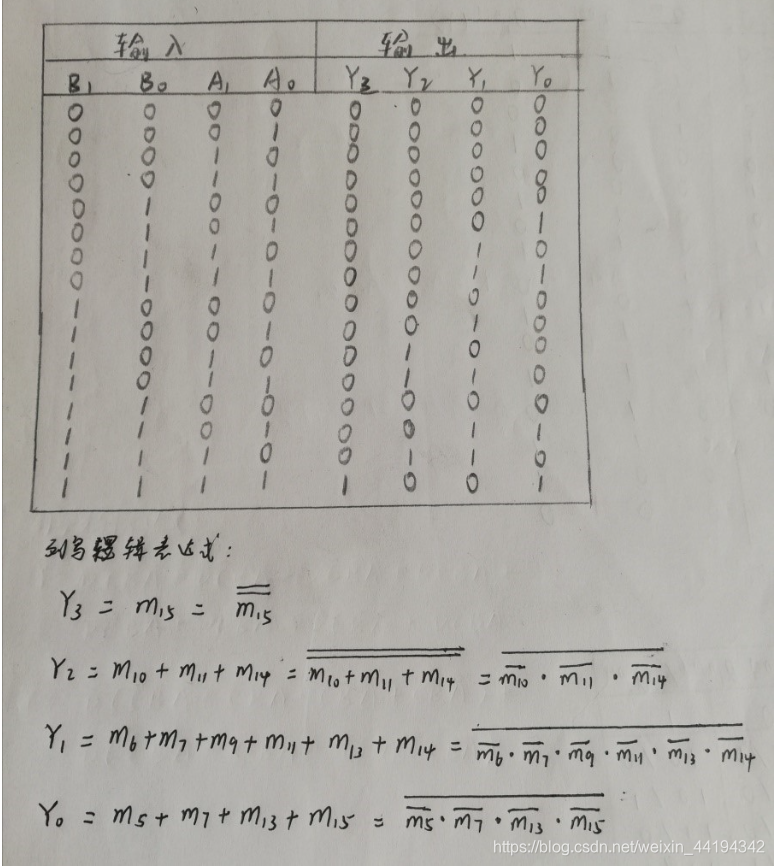 输入 输出
B₁ B₀ A₁ A₀ Y₃ Y₂ Y₁ Y₀
0 0 0 0 0 0 0 0
0 0 0 1 0 0 0 0
0 0 1 0 0 0 0 0
0 0 1 1 0 0 0 0
0 1 0 0 0 0 0 0
0 1 0 1 0 0 0 1
0 1 1 0 0 0 1 0
0 1 1 1 0 0 1 1
1 0 0 0 0 0 0 0
1 0 0 1 0 0 1 0
1 0 1 0 0 1 0 0
1 0 1 1 0 1 1 0
1 1 0 0 0 0 0 0
1 1 0 1 0 0 1 1
1 1 1 0 0 1 1 0
1 1 1 1 1 0 0 1
列写逻辑表达式:
Y₃ = m₁₅ = \overline{\overline{m₁₅}}
Y₂ = m₁₀ + m₁₁ + m₁₄ = \overline{\overline{m₁₀ + m₁₁ + m₁₄}} = \overline{\overline{m₁₀} · \overline{m₁₁} · \overline{m₁₄}}
Y₁ = m₆ + m₇ + m₉ + m₁₁ + m₁₃ + m₁₄ = \overline{\overline{m₆} · \overline{m₇} · \overline{m₉} · \overline{m₁₁} · \overline{m₁₃} · \overline{m₁₄}}
Y₀ = m₅ + m₇ + m₁₃ + m₁₅ = \overline{\overline{m₅} · \overline{m₇} · \overline{m₁₃} · \overline{m₁₅}}
https://blog.csdn.net/weixin_44194342